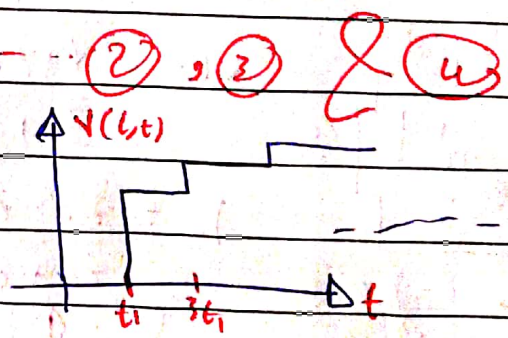 --- ② , ③ & ④
V(l,t)
t₁ 3t₁ t